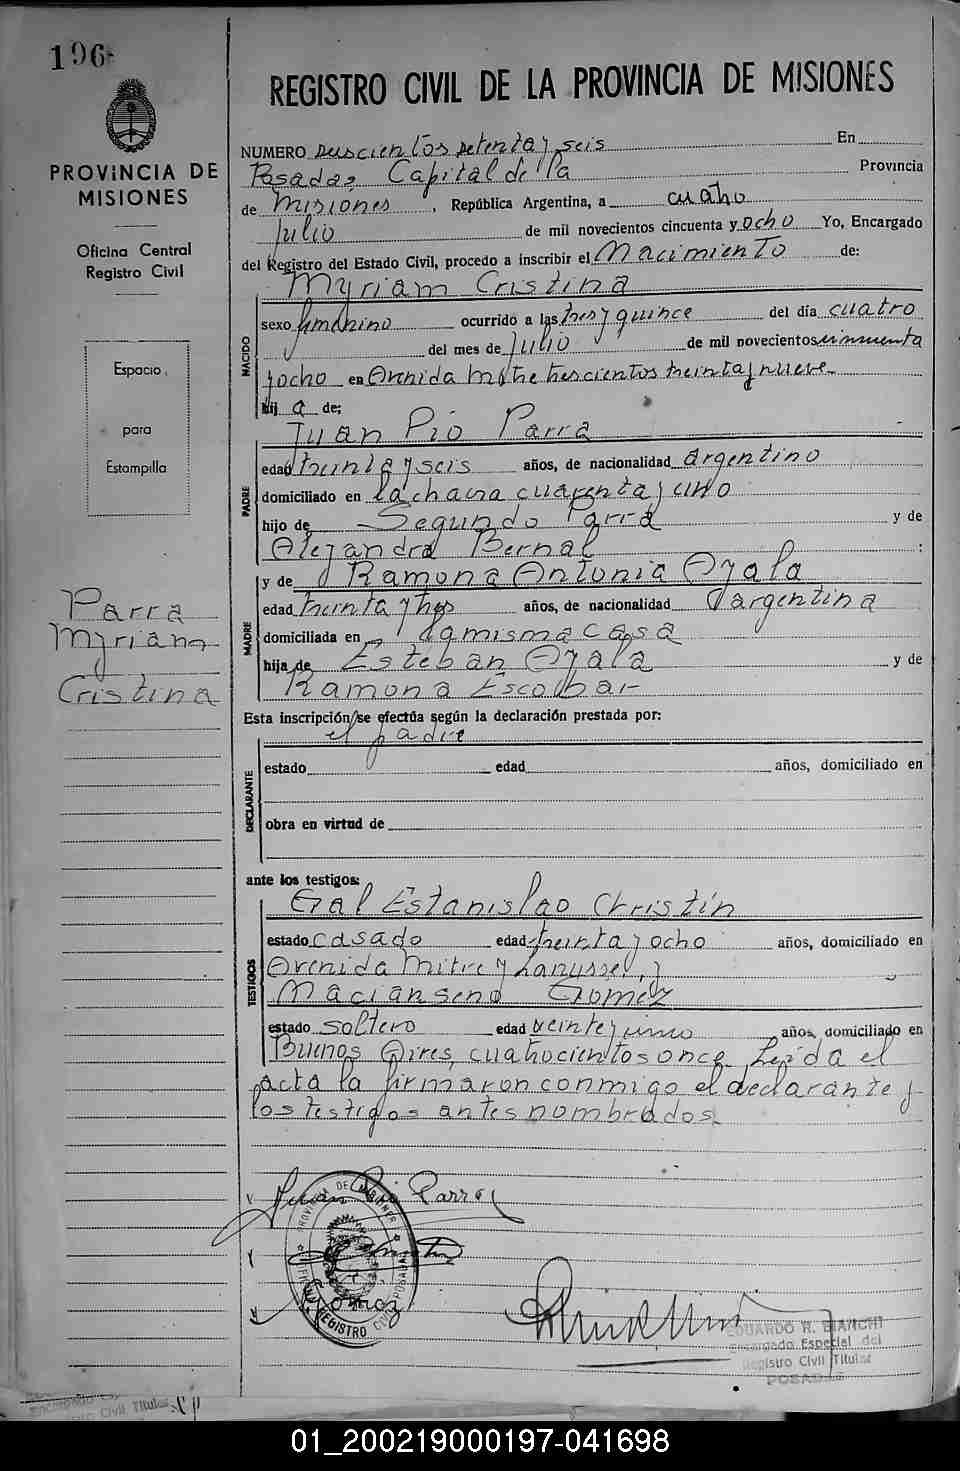 196
PROVINCIA DE
MISIONES
Oficina Central
Registro Civil
Espacio
para
Estampilla
Parra
Myriam
Cristina
REGISTRO CIVIL DE LA PROVINCIA DE MISIONES
NUMERO duscientos setenta y seis En
Posadas Capital de la Provincia
de Misiones, República Argentina, a cuatro
Julio de mil novecientos cincuenta y ocho Yo, Encargado
del Registro del Estado Civil, procedo a inscribir el Nacimiento de:
NACIDO
Myriam Cristina
sexo femenino ocurrido a las tres y quince del día cuatro
del mes de Julio de mil novecientos cincuenta
y ocho en Avenida Mitre trescientos treinta y nueve
hij a de:
PADRE
Juan Pio Parra
edad treinta y seis años, de nacionalidad argentino
domiciliado en la chacra cuarenta y uno
hijo de Segundo Parra y de
Alejandra Bernal
MADRE
y de Ramona Antonia Ayala
edad treinta y tres años, de nacionalidad argentina
domiciliada en la misma casa
hija de Esteban Ayala y de
Ramona Escobar
Esta inscripción se efectúa según la declaración prestada por:
el padre
DECLARANTE
estado edad años, domiciliado en
obra en virtud de
ante los testigos:
TESTIGOS
Gal Estanislao Christin
estado casado edad treinta y ocho años, domiciliado en
Avenida Mitre y Lanusse, y
Macianseno Gomez
estado soltero edad veinte y uno años, domiciliado en
Buenos Aires, cuatrocientos once. Leida el
acta la firmaron conmigo el declarante y
los testigos antes nombrados.
Juan Pio Parra
PROVINCIA DE MISIONES
OFICINA REGISTRO CIVIL POSADAS
Gomez
EDUARDO R. BIANCHI
Encargado Especial del
Registro Civil Titular
POSADAS
Civil Titular
01_200219000197-041698